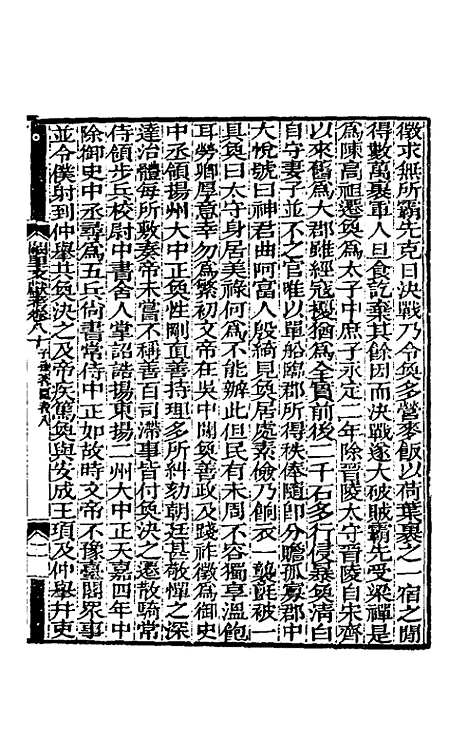 徵求無所霸先克日決戰乃令奐多營麥飯以荷葉裹之一宿之間
得數萬裹軍人旦食訖棄其餘因而決戰遂大破賊霸先受梁禪是
爲陳高祖遷奐爲太子中庶子永定二年除晉陵太守晉陵自宋齊
以來舊爲大郡雖經寇擾猶爲全實前後二千石多行侵暴奐清白
自守妻子並不之官唯以單船臨郡所得秩俸隨即分贍孤寡郡中
大悅號曰神君曲阿富人殷綺見奐居處素儉乃餉衣一襲氈被一
具奐曰太守身居美祿何爲不能辦此但民有未周不容獨享溫飽
耳勞卿厚意幸勿爲繁初文帝在吳中聞奐善政及踐祚徵爲御史
中丞領揚州大中正奐性剛直善持理多所糾劾朝廷甚敬憚之深
達治體每所敷奏帝未嘗不稱善百司滯事皆付奐決之遷散騎常
侍領步兵校尉中書舍人掌詔誥揚東揚二州大中正天嘉四年中
除御史中丞尋爲五兵尚書常侍中正如故時文帝不豫臺閣眾事
並令僕射到仲舉共奐決之及帝疾篤奐與安成王頊及仲舉并吏